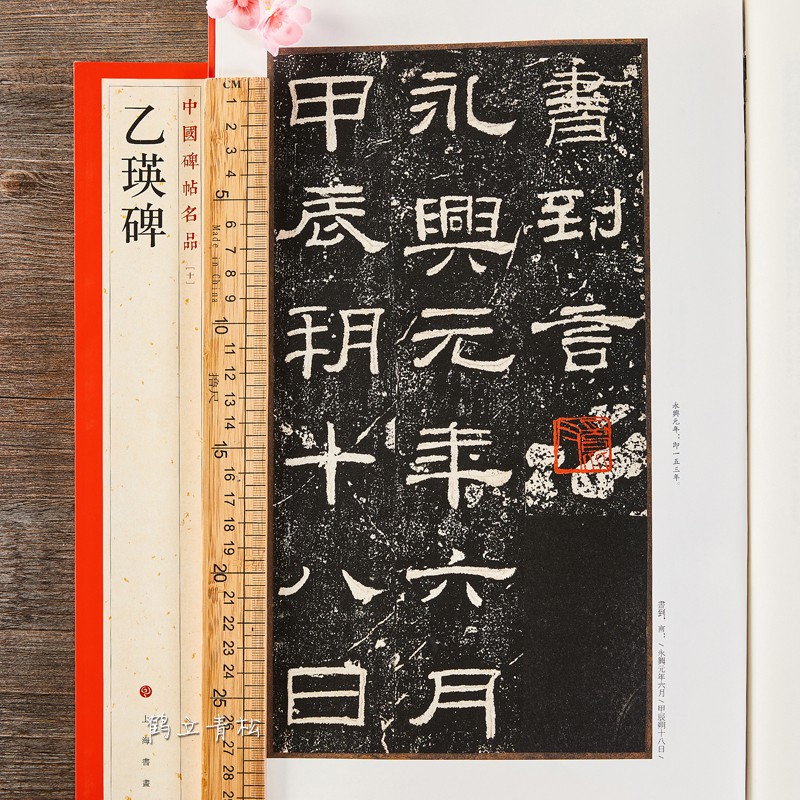 中國碑帖名品
[十]
乙瑛碑
上海書畫
鹤立青松
CM
1
2
3
4
5
6
7
8
9
10
11
12
13
14
15
16
17
18
19
20
21
22
23
24
25
26
27
28
29
Made in China
書到言
永興元年六月
甲辰朔十八日
永興元年：即一五三年。
書到，言：／永興元年六月／甲辰朔十八日／